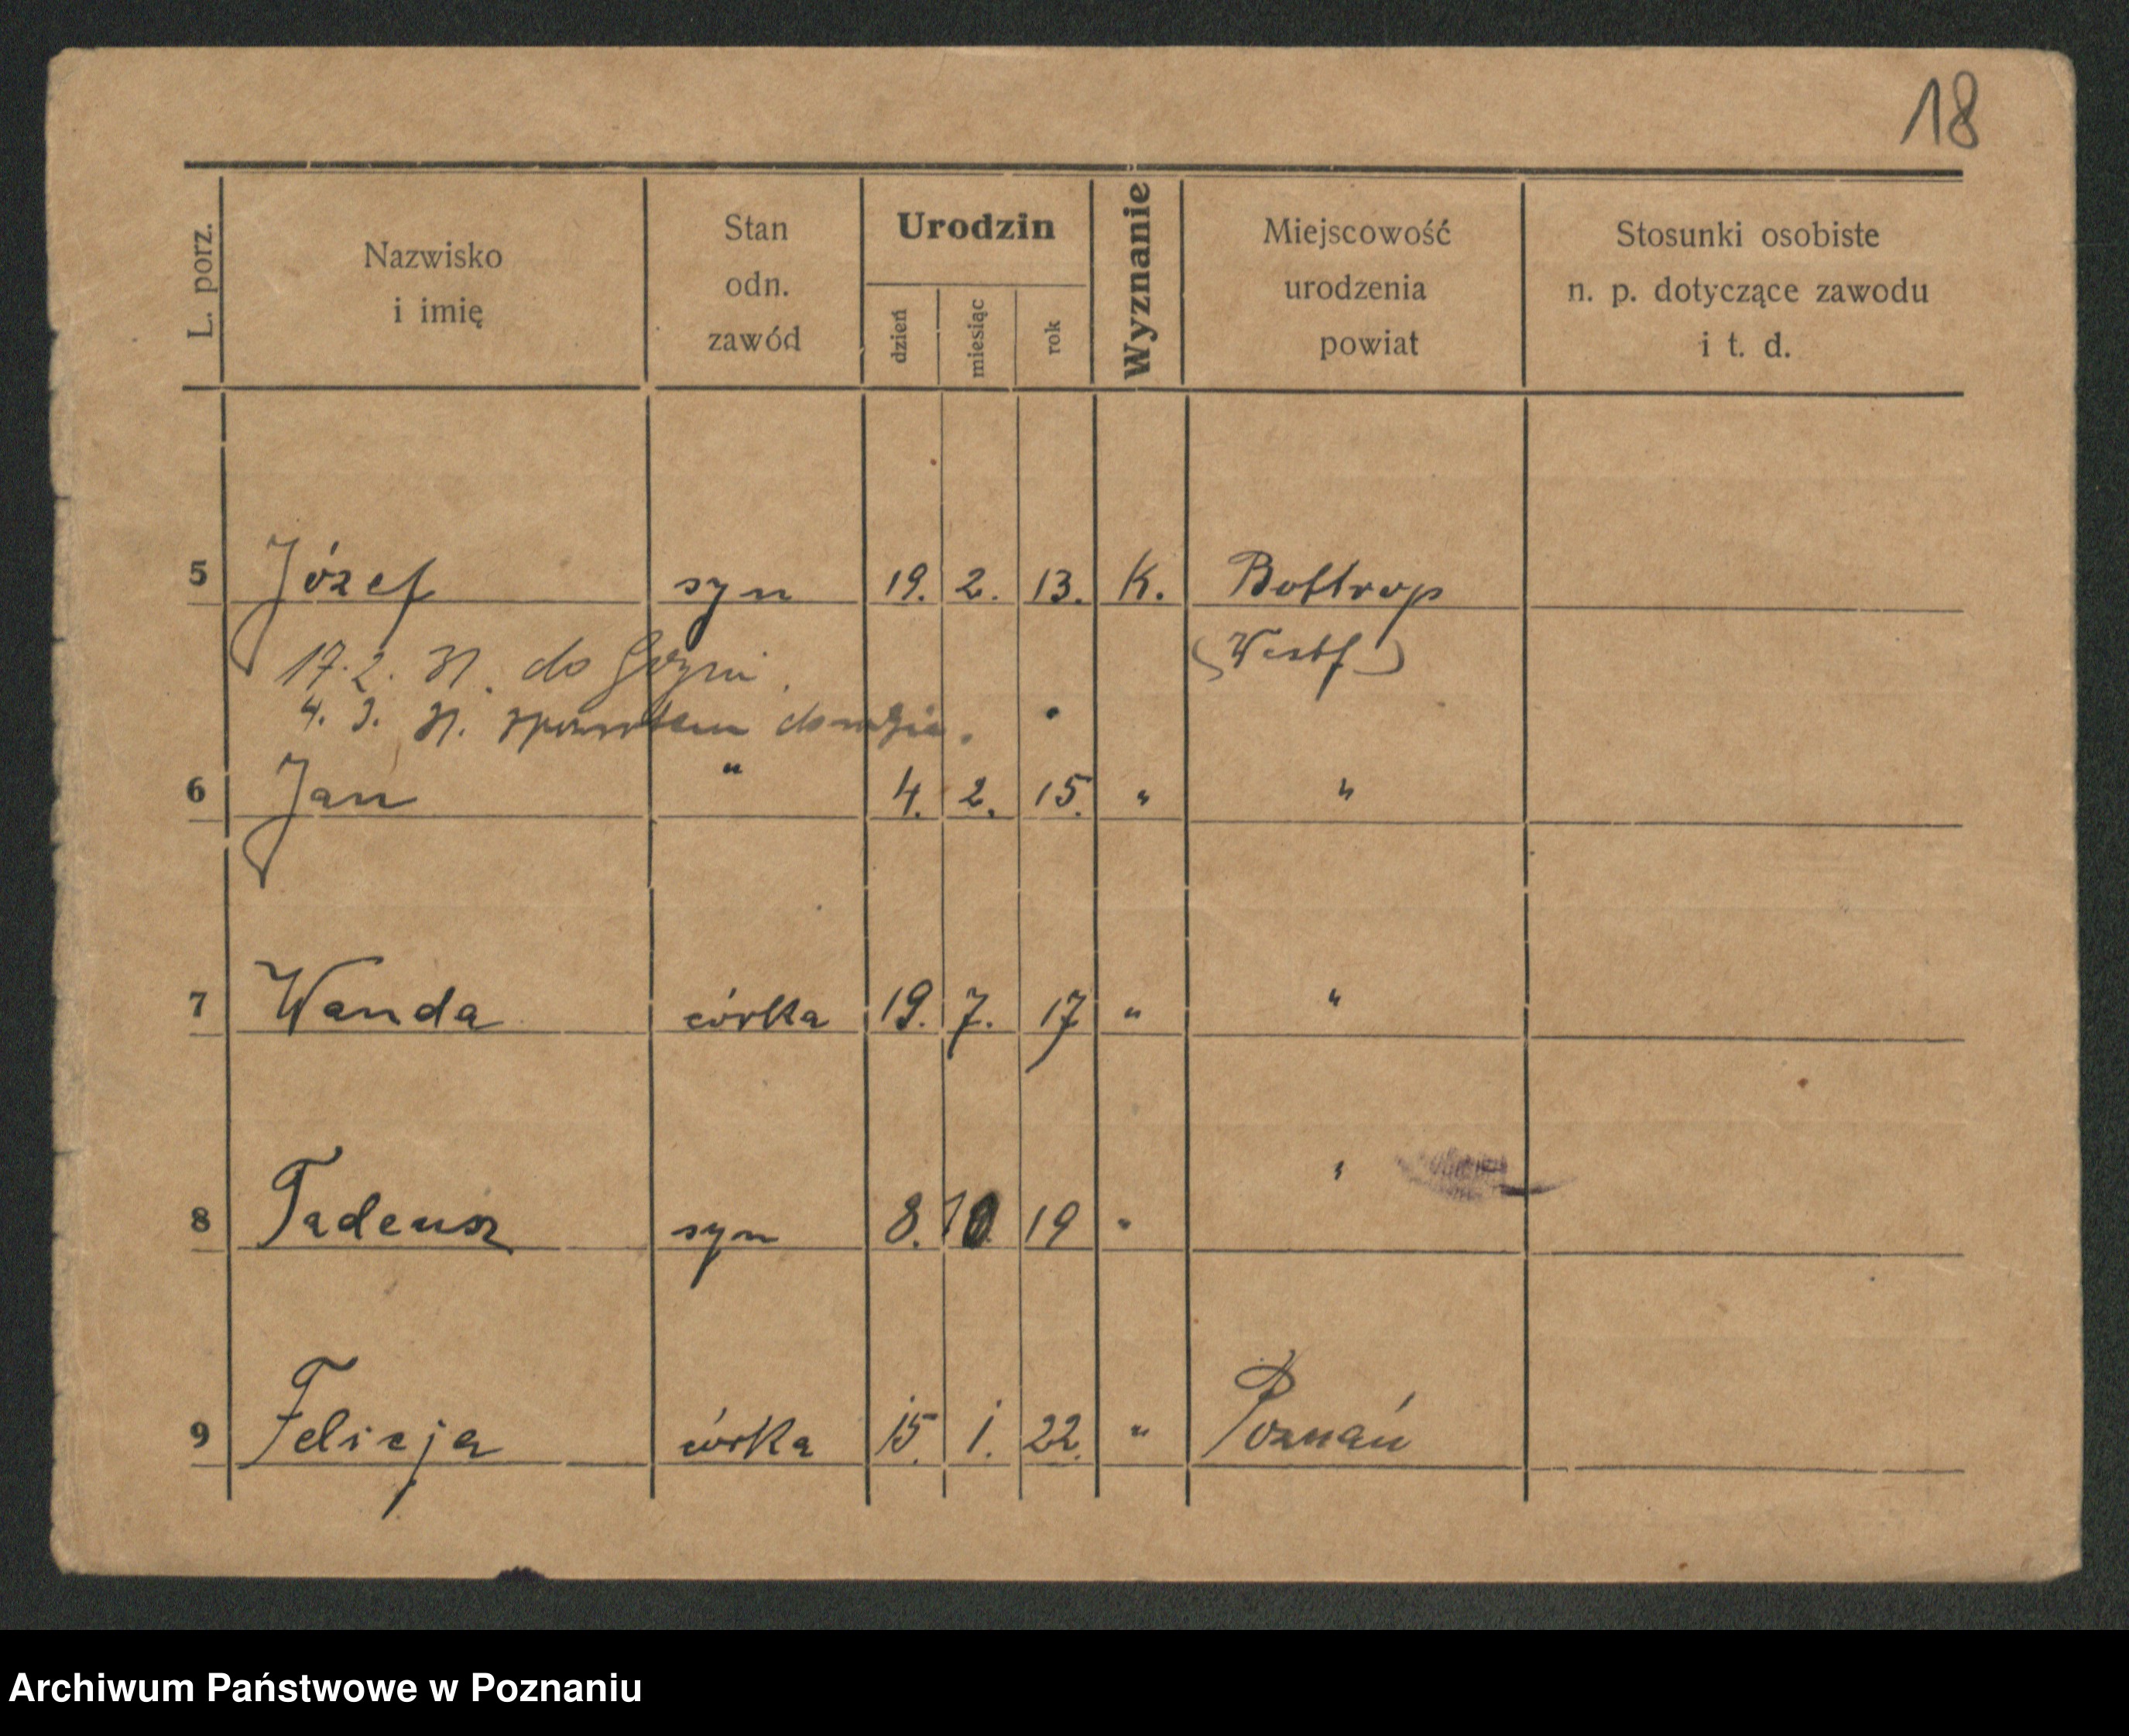 18
L. porz.
Nazwisko
i imię
Stan
odn.
zawód
Urodzin
dzień
miesiąc
rok
Wyznanie
Miejscowość
urodzenia
powiat
Stosunki osobiste
n. p. dotyczące zawodu
i t. d.
5 Józef syn 19. 2. 13. K. Bottrop
(Westf)
17. 2. 31. do Gdyni.
4. 3. 31. zpowrotem
6 Jan " 4. 2. 15. " "
7 Wanda córka 19. 7. 17 " "
8 Tadeusz syn 8. 10 19 " "
9 Felicja córka 15. 1. 22. " Poznań
Archiwum Państwowe w Poznaniu